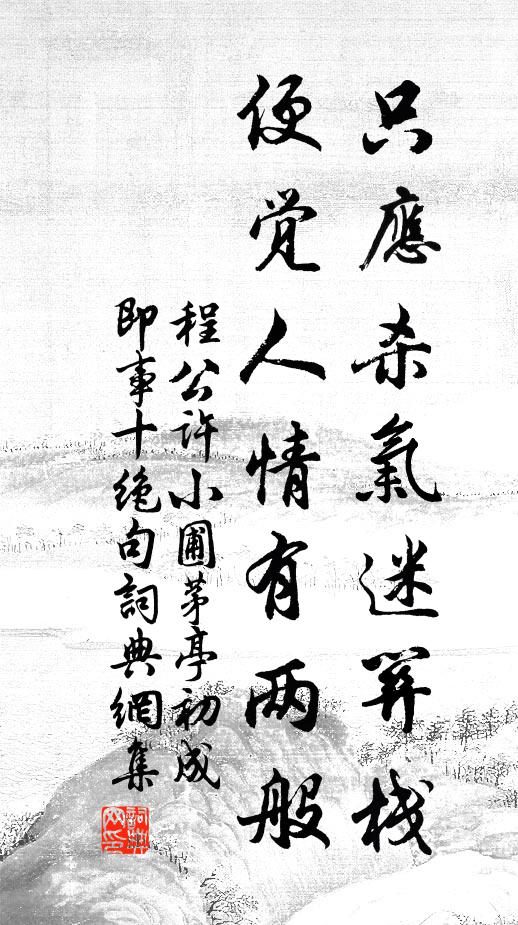 只應杀氣迷關栈
便觉人情有两般
程公许小圃茅亭初成
即事十绝句詞典網集